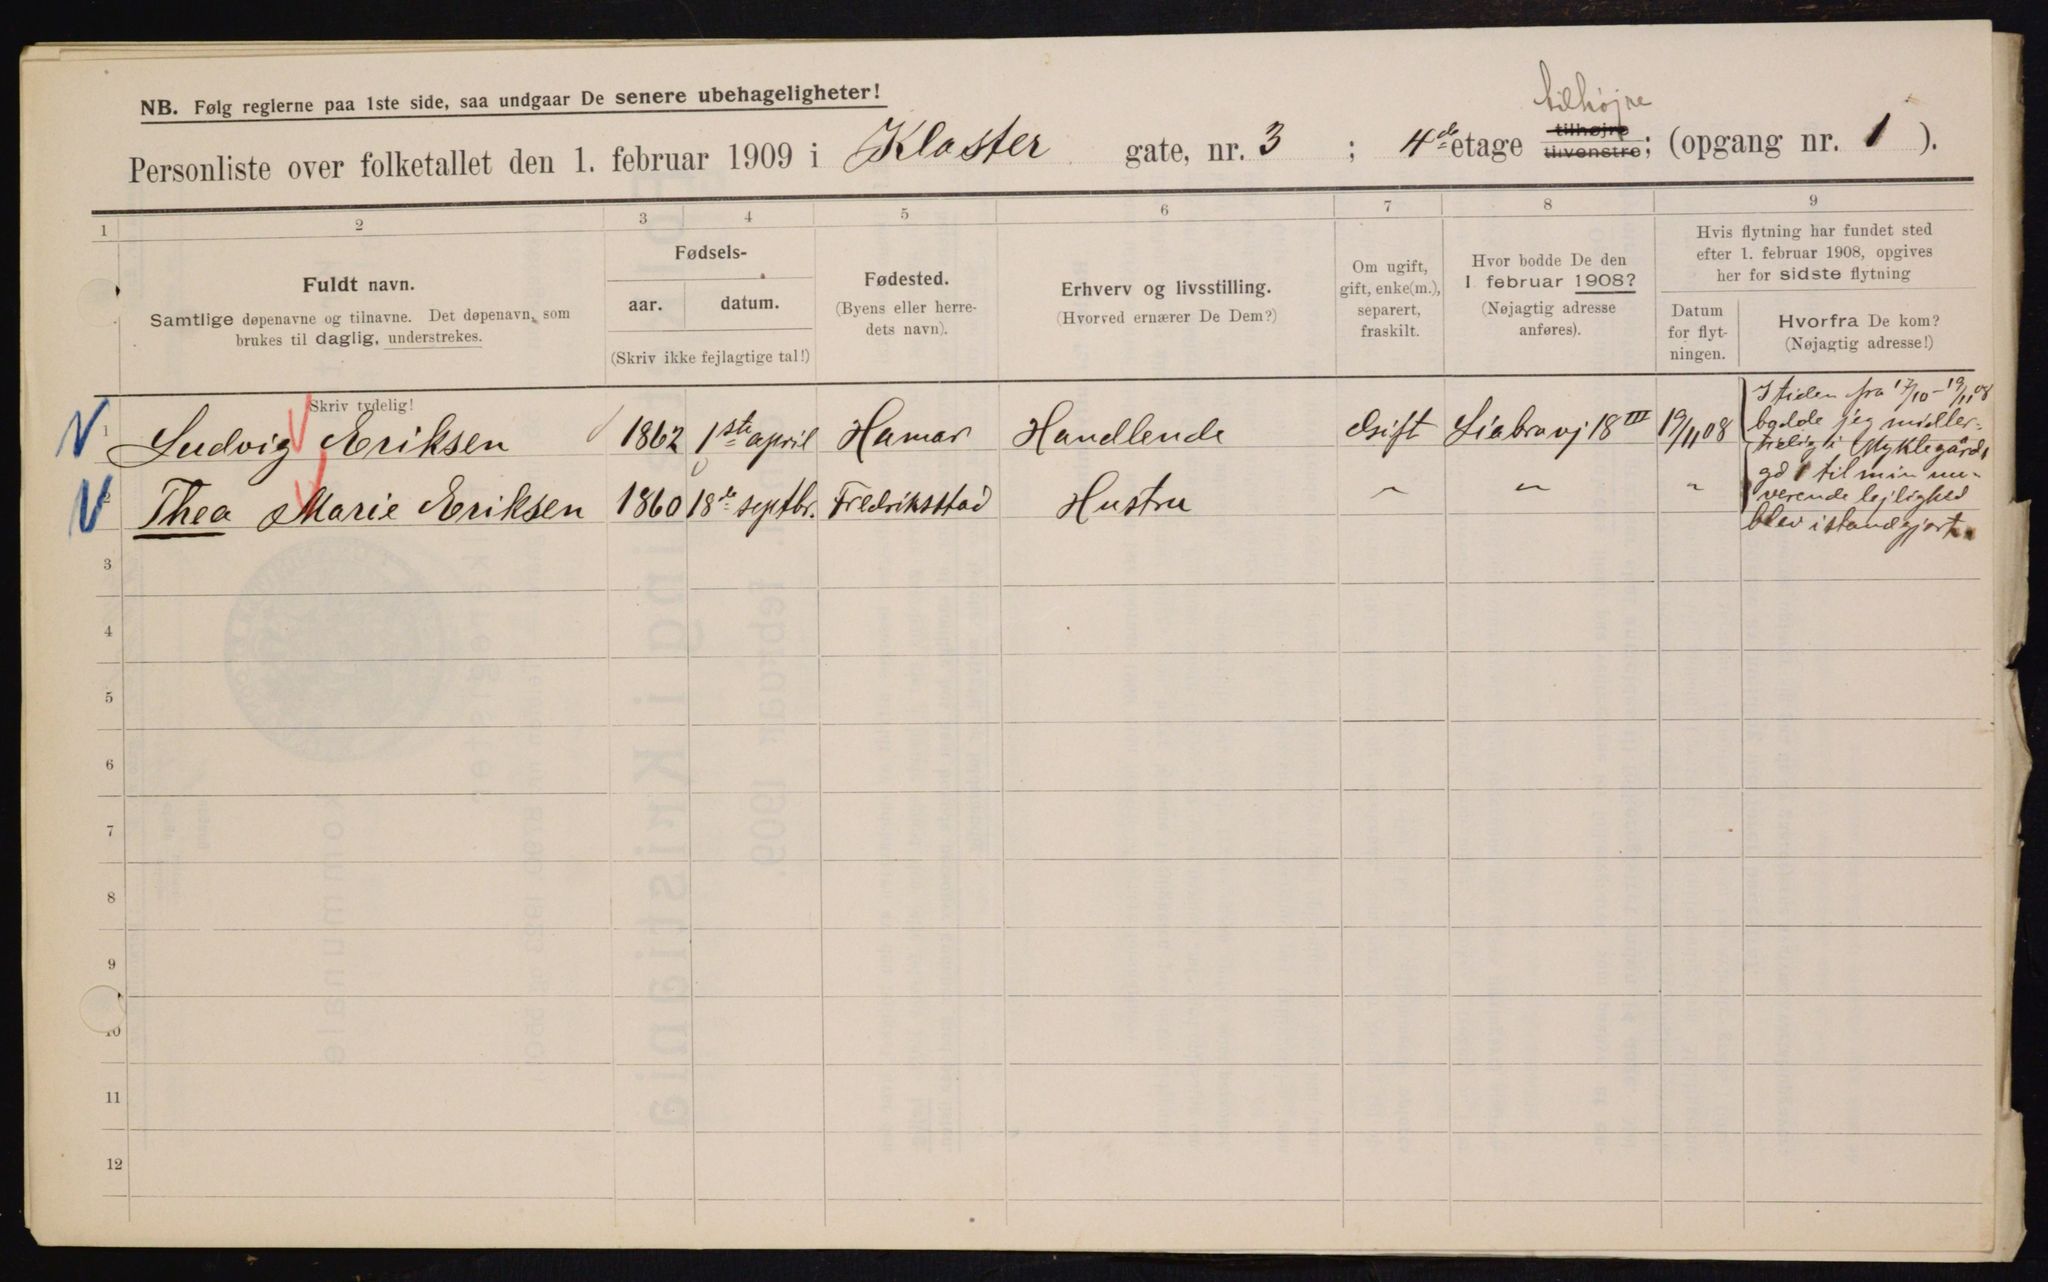 NB. Følg reglerne paa 1ste side, saa undgaar De senere ubehageligheter!
tilhøjre
Personliste over folketallet den 1. februar 1909 i Kloster gate, nr. 3 ; 4de etage tilhøjre tilvenstre; (opgang nr. 1 ).
1 2 3 4 5 6 7 8 9
Fuldt navn.
Samtlige døpenavne og tilnavne. Det døpenavn, som
brukes til daglig, understrekes.
Skriv tydelig!
Fødsels-
aar. datum.
(Skriv ikke fejlagtige tal!)
Fødested.
(Byens eller herre-
dets navn).
Erhverv og livsstilling.
(Hvorved ernærer De Dem?)
Om ugift,
gift, enke(m.),
separert,
fraskilt.
Hvor bodde De den
1 februar 1908?
(Nøjagtig adresse
anføres).
Hvis flytning har fundet sted
efter 1. februar 1908, opgives
her for sidste flytning
Datum
for flyt-
ningen.
Hvorfra De kom?
(Nøjagtig adresse!)
1 Ludvig Eriksen 1862 1ste april Hamar Handlende Gift Liabravj 18 III 19/11 08
2 Thea Marie Eriksen 1860 18de septbr. Fredriksstad Hustru " " "
I tiden fra 17/10 - 19/11 08
bodde jeg midler-
tidig i
gd 1 til min nu-
verende lejlighed
blev istandgjort.
3
4
5
6
7
8
9
10
11
12